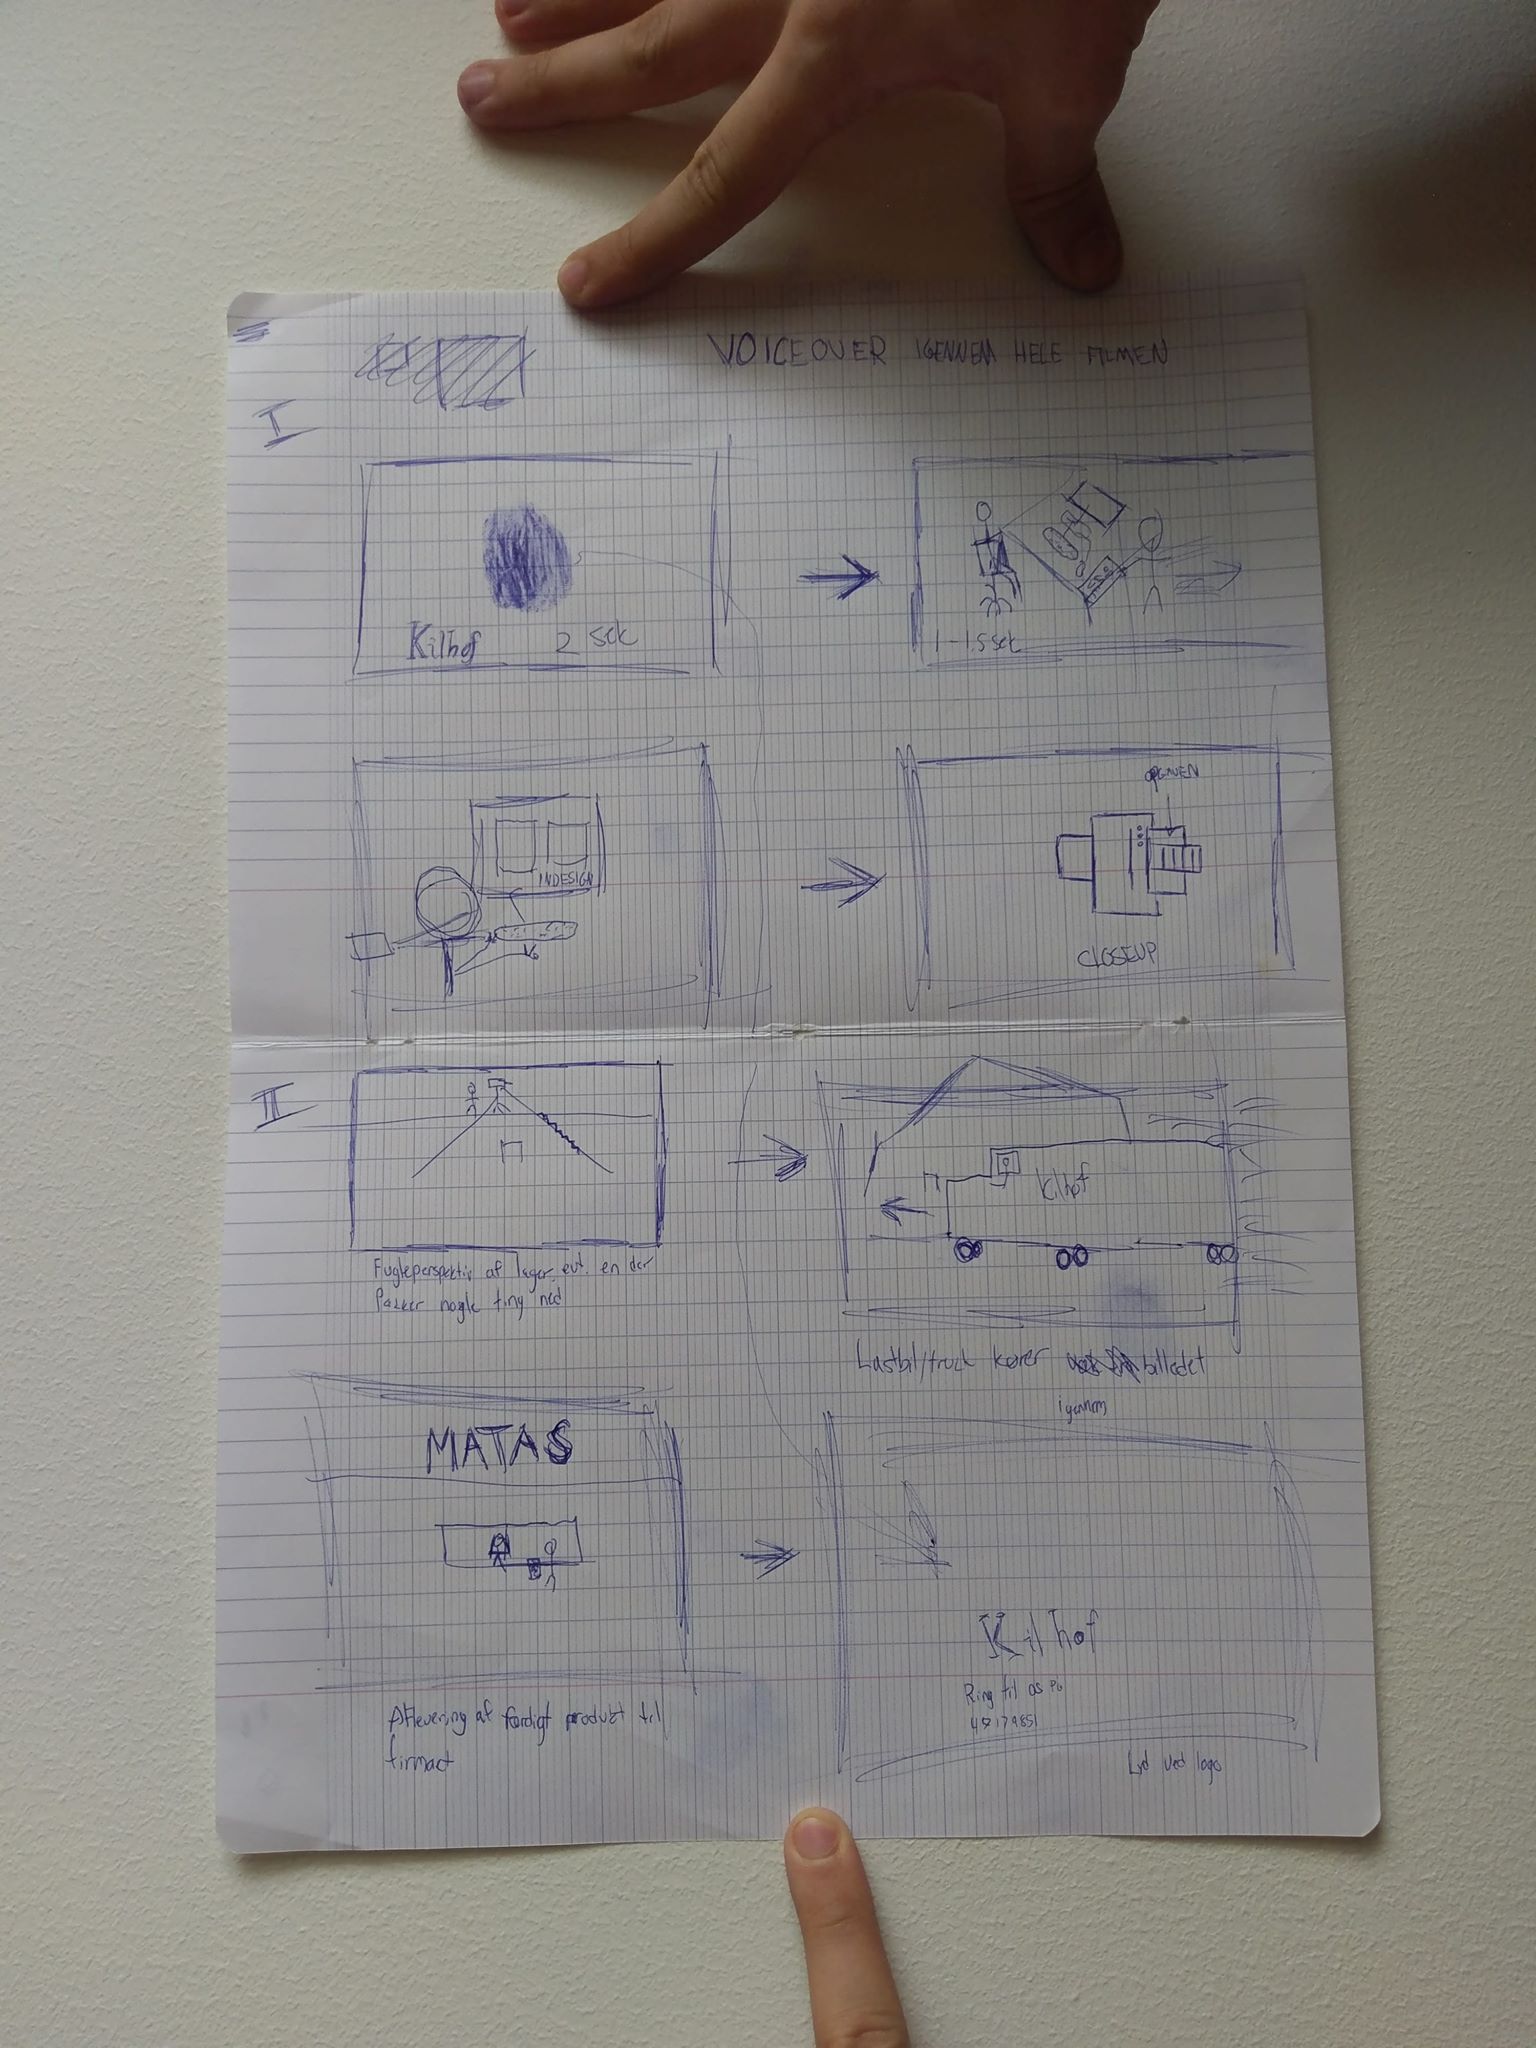 VOICEOVER IGENNEM HELE FILMEN
I
Kilhof 2 sek
1-1.5 sek
INDESIGN
CLOSEUP
II
Fugleperspektiv af lager, evt. en der
Pakker nogle ting ned
Kilhof
Lastbil/truck kører billedet
igennem
MATAS
Aflevering af færdigt produkt til
firmaet
Kilhof
Ring til os på
Lyd ved logo